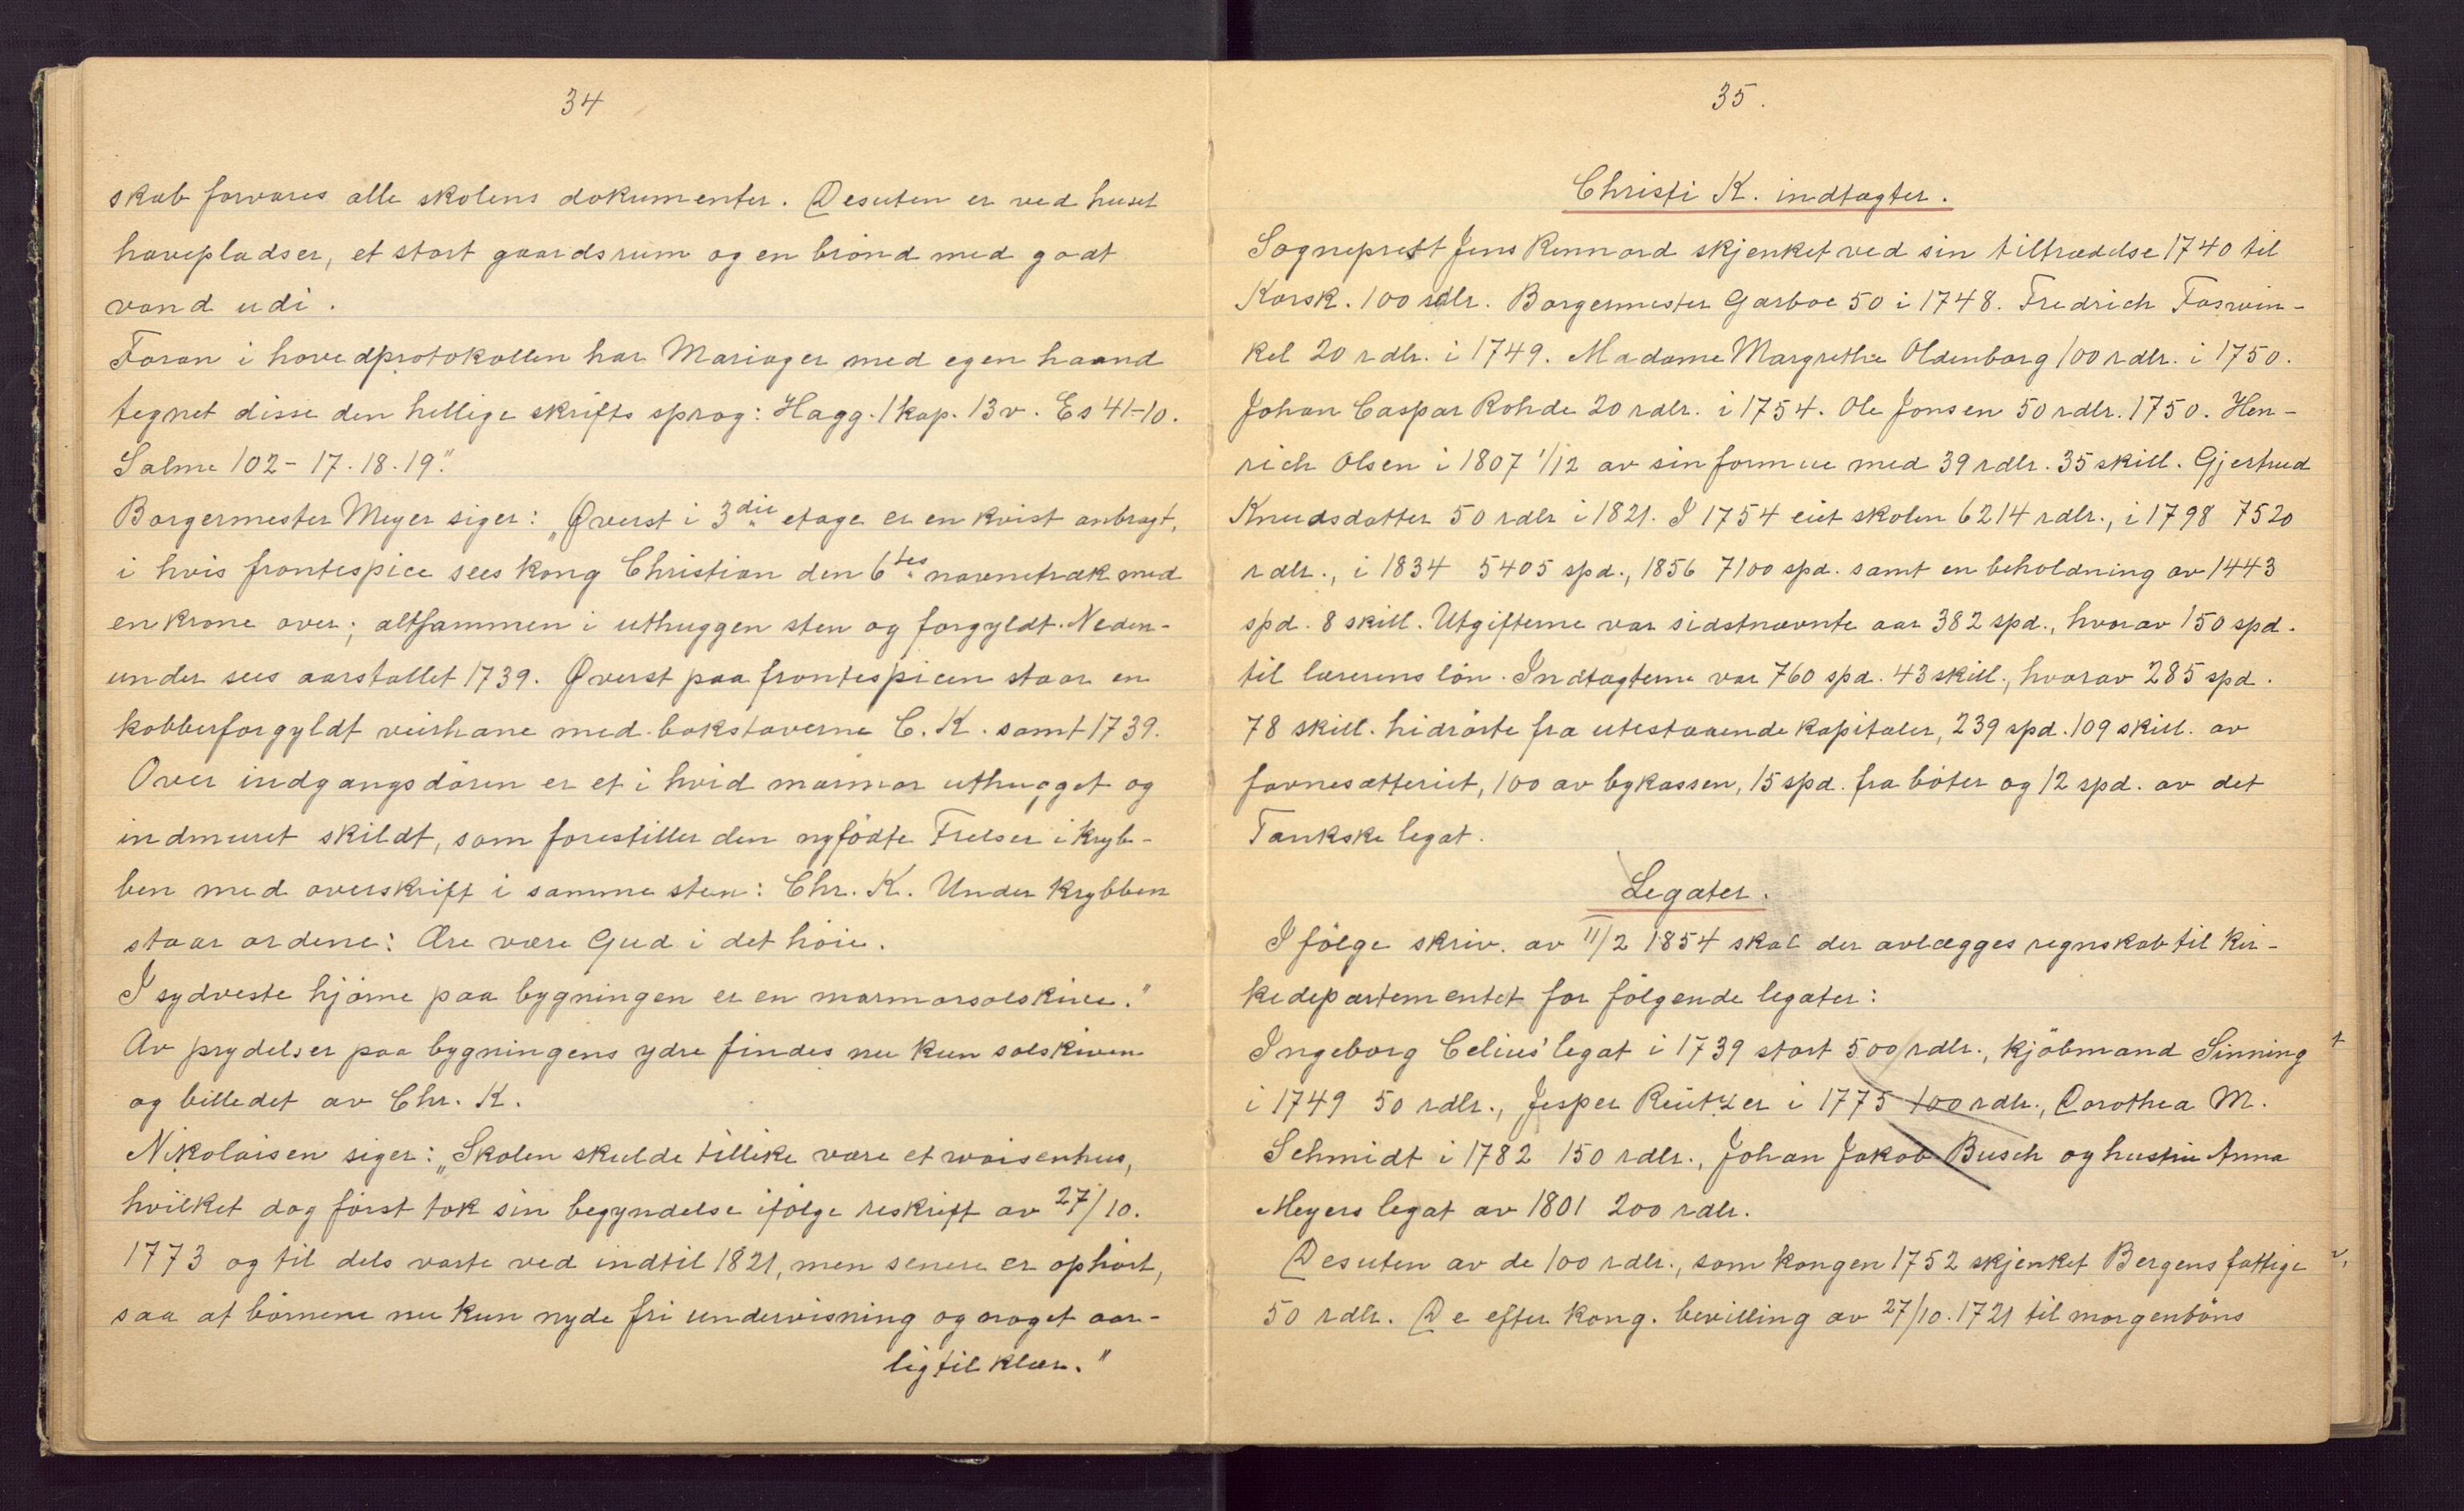 34
skab forvares alle skolens dokumenter. Desuten er ved huset
havepladser, et stort gaardsrum og en brönd med godt
vand udi.
Foran i hovedprotokollen har Mariager med egen haand
tegnet disse den hellige skrifts sprog: Hagg. 1 kap. 13 v. Es 41-10.
Salme 102 - 17. 18. 19."
Borgermester Meyer siger: „Øverst i 3die etage er en kvist anbragt,
i hvis frontespice sees kong Christian den 6tes navnetræk med
en krone over; altsammen i uthuggen sten og forgyldt. Neden-
under sees aarstallet 1739. Øverst paa frontespicen staar en
kobberforgyldt veirhane med bokstaverne C. K. samt 1739.
Over indgangsdören er et i hvid marmor uthugget og
indmuret skildt, som forestiller den nyfödte Frelser i kryb-
ben med overskrift i samme sten: Chr. K. Under krybben
staar ordene: Ære være Gud i det höie.
I sydveste hjörne paa bygningen er en marmorsolskive."
Av prydelser paa bygningens ydre findes nu kun solskiven
og billedet av Chr. K.
Nikolaisen siger: „Skolen skulde tillike være et waisenhus,
hvilket dog först tok sin begyndelse ifölge reskrift av 27/10.
1773 og til dels varte ved indtil 1821, men senere er ophört,
saa at börnene nu kun nyde fri undervisning og noget aar-
lig til klær."
35.
Christi K. indtægter.
Sogneprest Jens Rennord skjenket ved sin tiltrædelse 1740 til
Korsk. 100 rdlr. Borgermester Garboe 50 i 1748. Fredrich Faswin-
kel 20 rdlr. i 1749. Madame Margrethe Oldenborg 100 rdlr. i 1750.
Johan Caspar Rohde 20 rdlr. i 1754. Ole Jonsen 50 rdlr. 1750. Hen-
rich Olsen i 1807 1/12 av sin formue med 39 rdlr. 35 skill. Gjertrud
Knudsdatter 50 rdlr i 1821. I 1754 eiet skolen 6214 rdlr., i 1798 7520
rdlr., i 1834 5405 spd., 1856 7100 spd. samt en beholdning av 1443
spd. 8 skill. Utgifterne var sidstnævnte aar 382 spd., hvorav 150 spd.
til lærerens lön. Indtægterne var 760 spd. 43 skill., hvorav 285 spd.
78 skill. hidrörte fra utestaaende kapitaler, 239 spd. 109 skill. av
favnesætteriet, 100 av bykassen, 15 spd. fra böter og 12 spd. av det
Tankske legat.
Legater.
I fölge skriv. av 11/2 1854 skal der avlægges regnskab til kir-
kedepartementet for fölgende legater:
Ingeborg Celius' legat i 1739 stort 500 rdlr., kjöbmand Sinning
i 1749 50 rdlr., Jesper Reutzer i 1775 100 rdlr., Dorothea M.
Schmidt i 1782 150 rdlr., Johan Jakob Busch og hustru Anna
Meyers legat av 1801 200 rdlr.
Desuten av de 100 rdlr., som kongen 1752 skjenket Bergens fattige
50 rdlr. De efter kong. bevilling av 27/10. 1721 til morgenböns